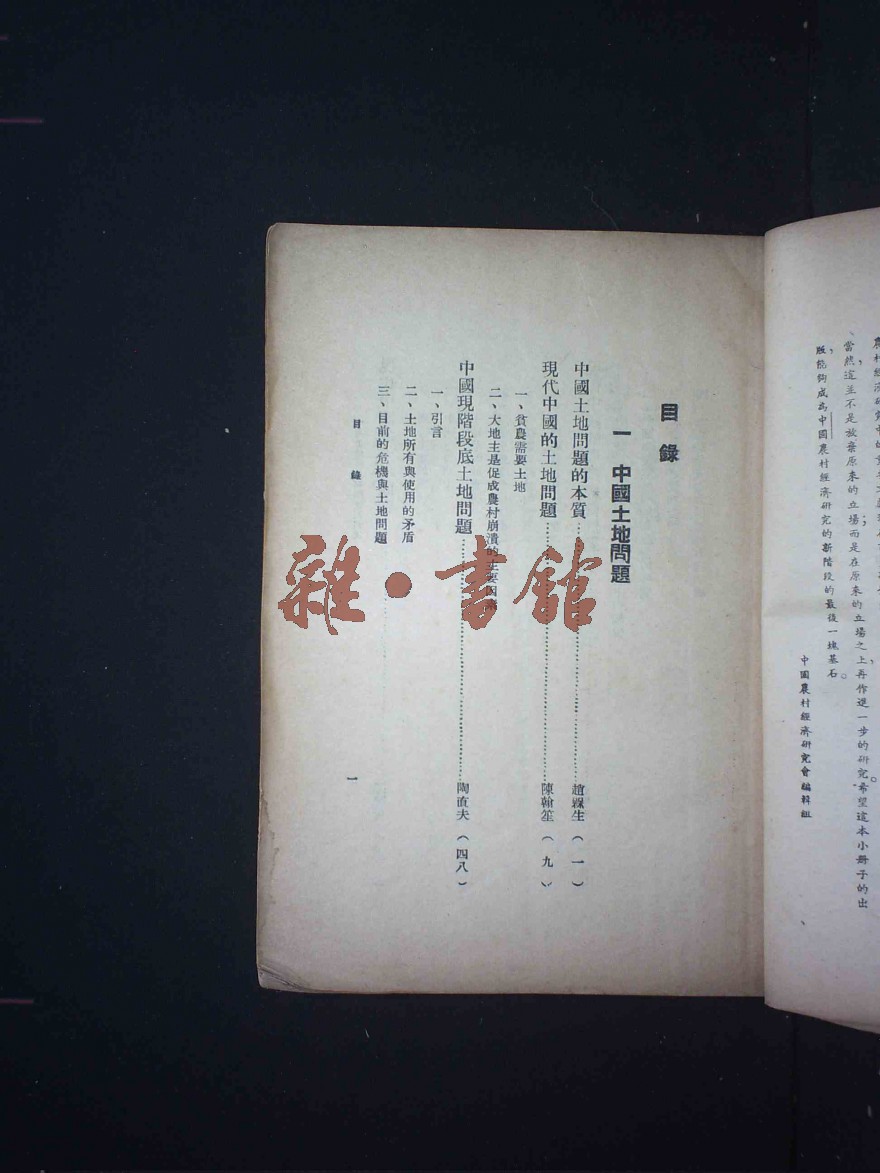 農村經濟研究
當然，這並不是放棄原來的立場；而是在原來的立場之上，再作進一步的研究。希望這本小冊子的出
版，能夠成為中國農村經濟研究的新階段的最後一塊基石。
中國農村經濟研究會編輯組
目錄
一 中國土地問題
中國土地問題的本質……趙槑生（一）
現代中國的土地問題……陳翰笙（九）
一、貧農需要土地
二、大地主是促成農村崩潰的主要因素
中國現階段底土地問題……陶直夫（四八）
一、引言
二、土地所有與使用的矛盾
三、目前的危機與土地問題
目錄
一
雜·書館